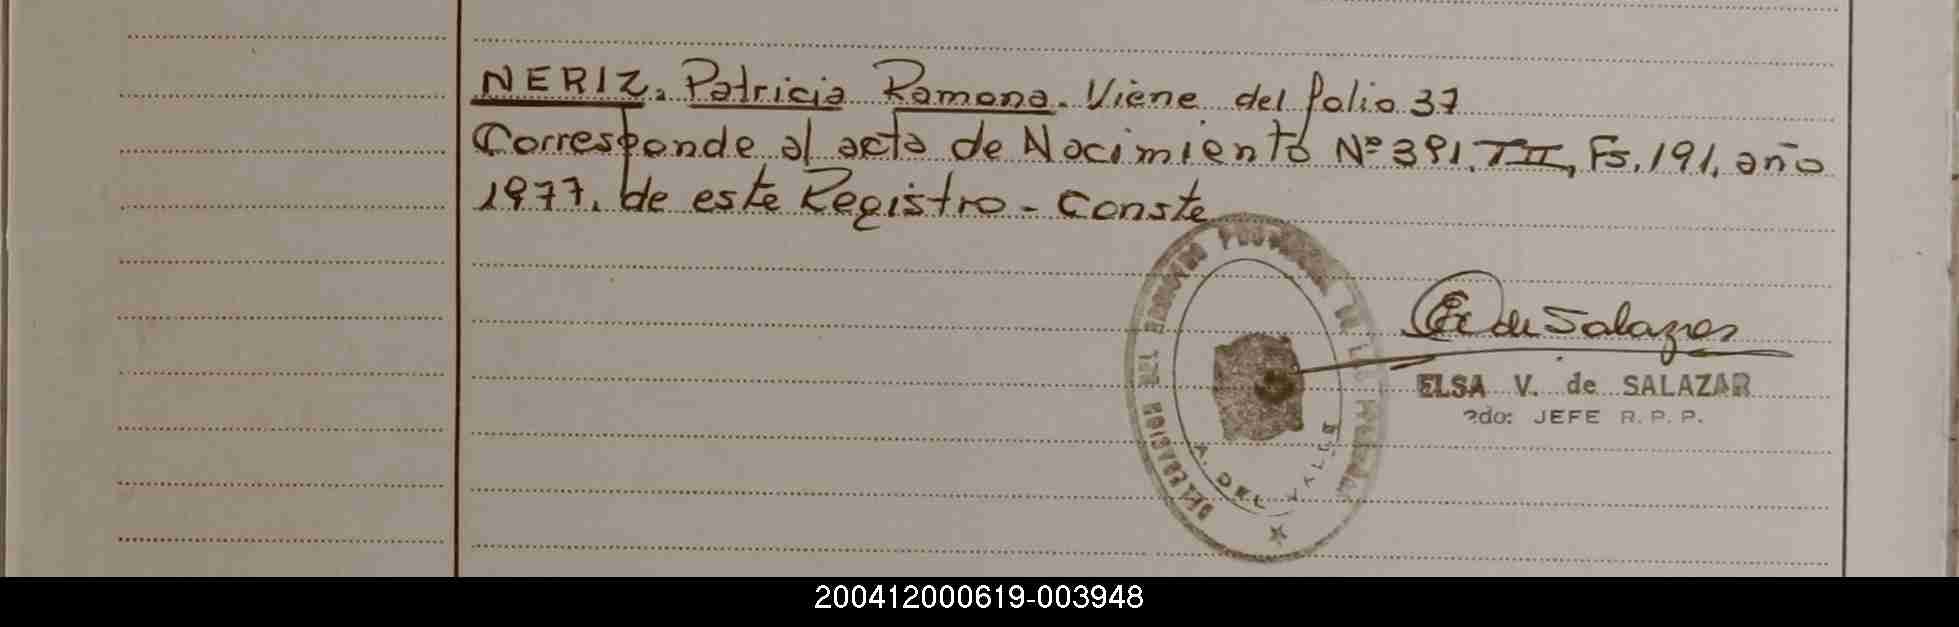 NERIZ, Patricia Ramona. Viene del folio 37
Corresponde al acta de Nacimiento Nº 391, TII, Fs. 191, año
1977. de este Registro - Conste
DELEGACION DEL REGISTRO
DEL VALLE
de Salazar
ELSA V. de SALAZAR
2do: JEFE R. P. P.
200412000619-003948